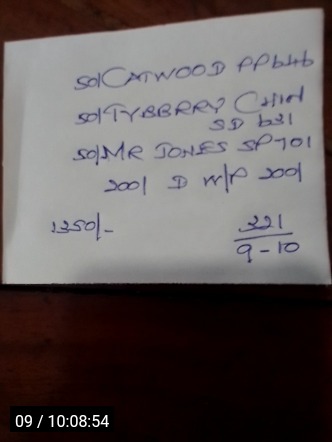 50/ CATWOOD PP646
50/ TYBBRRY CHAIN
SD 631
50/ MR JONES SP701
200/ D W/P 200/
1350/-
321
9-10
09 / 10:08:54